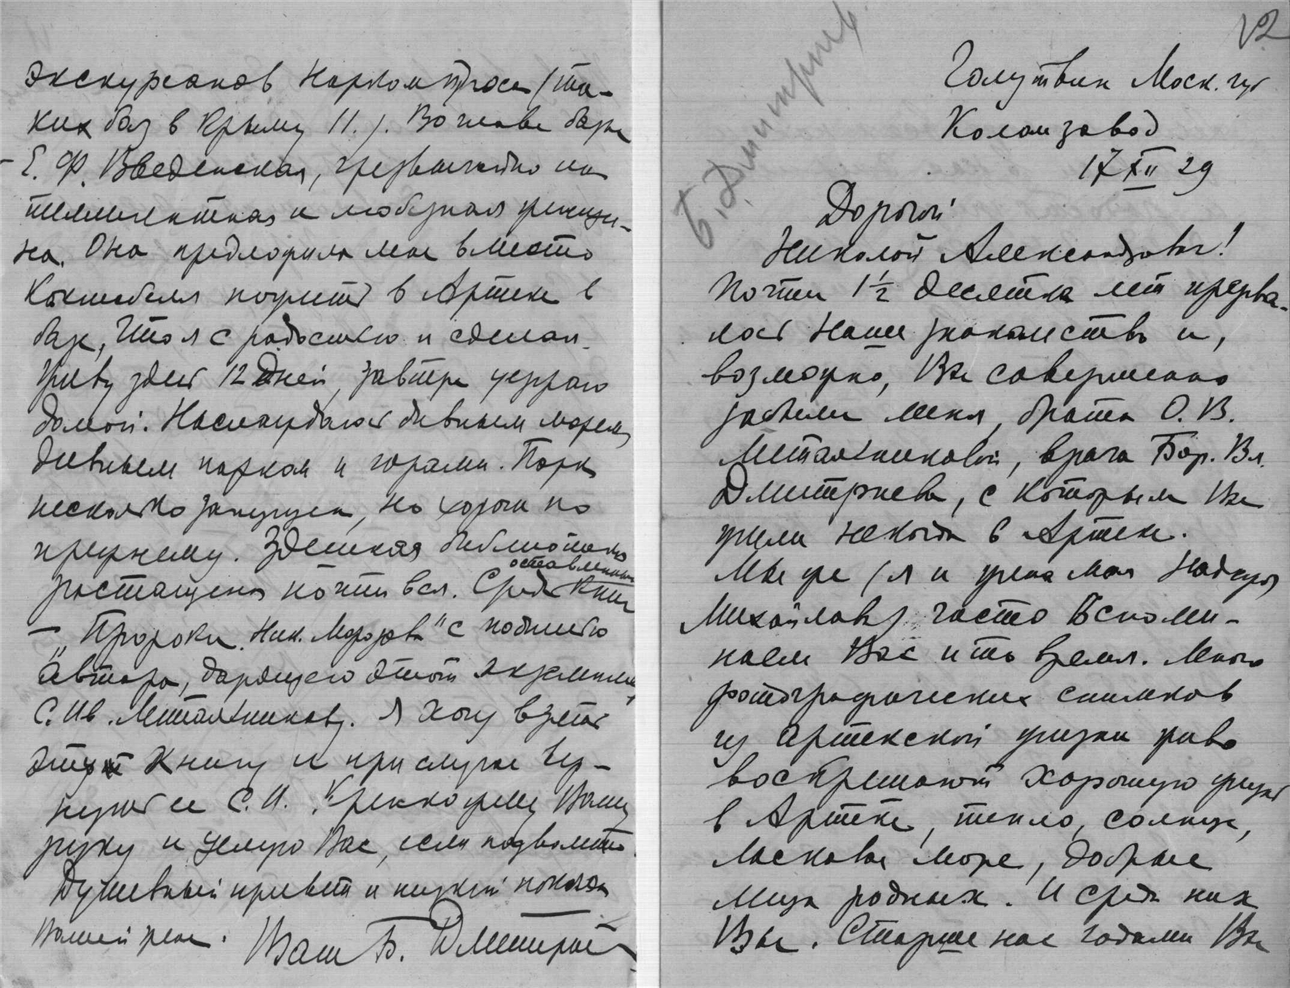 экскурсантов Наркомпроса (та-
ких баз в Крыму 11.). Во главе базы
- Е. Ф. Введенская, чрезвычайно ин
теллигентная и любезная женщи-
на. Она предложила мне вместо
Коктебеля пожить в Артеке в
базе, что я с радостью и сделал.
Живу здесь 12 дней, завтра уезжаю
домой. Наслаждаюсь дивным морем,
дивным парком и горами. Парк
несколько запущен, но хорош по
прежнему. Здешняя библиотека
растащена почти вся. Средь оставленных книг
- "Пророки" Ник. Морозова с надписью
автора, дарящего этот экземпляр
С. Ив. Метальникову. Я хочу взять
эту книгу и при случае вер-
нуть ее С. И. Крепко жму Вашу
руку и целую Вас, если позволите.
Душевный привет и низкий поклон
Вашей жене.
Ваш Б. Дмитриев
12
Б. Дмитриев
Голутвин Моск. губ
Коломзавод
17 XII 29
Дорогой
Николай Александрович!
Почти 1½ десятка лет прерва-
лось наше знакомство и,
возможно, Вы совершенно
забыли меня, брата О. В.
Метальниковой, врача Бор. Вл.
Дмитриева, с которым Вы
жили некогда в Артеке.
Мы же (я и жена моя Надежда
Михайловна) часто вспоми-
наем Вас и то время. Много
фотографических снимков
из артекской жизни живо
воскрешают хорошую жизнь
в Артеке, тепло, солнце,
ласковое море, добрые
лица родных. И средь них
Вы. Старше нас годами Вы